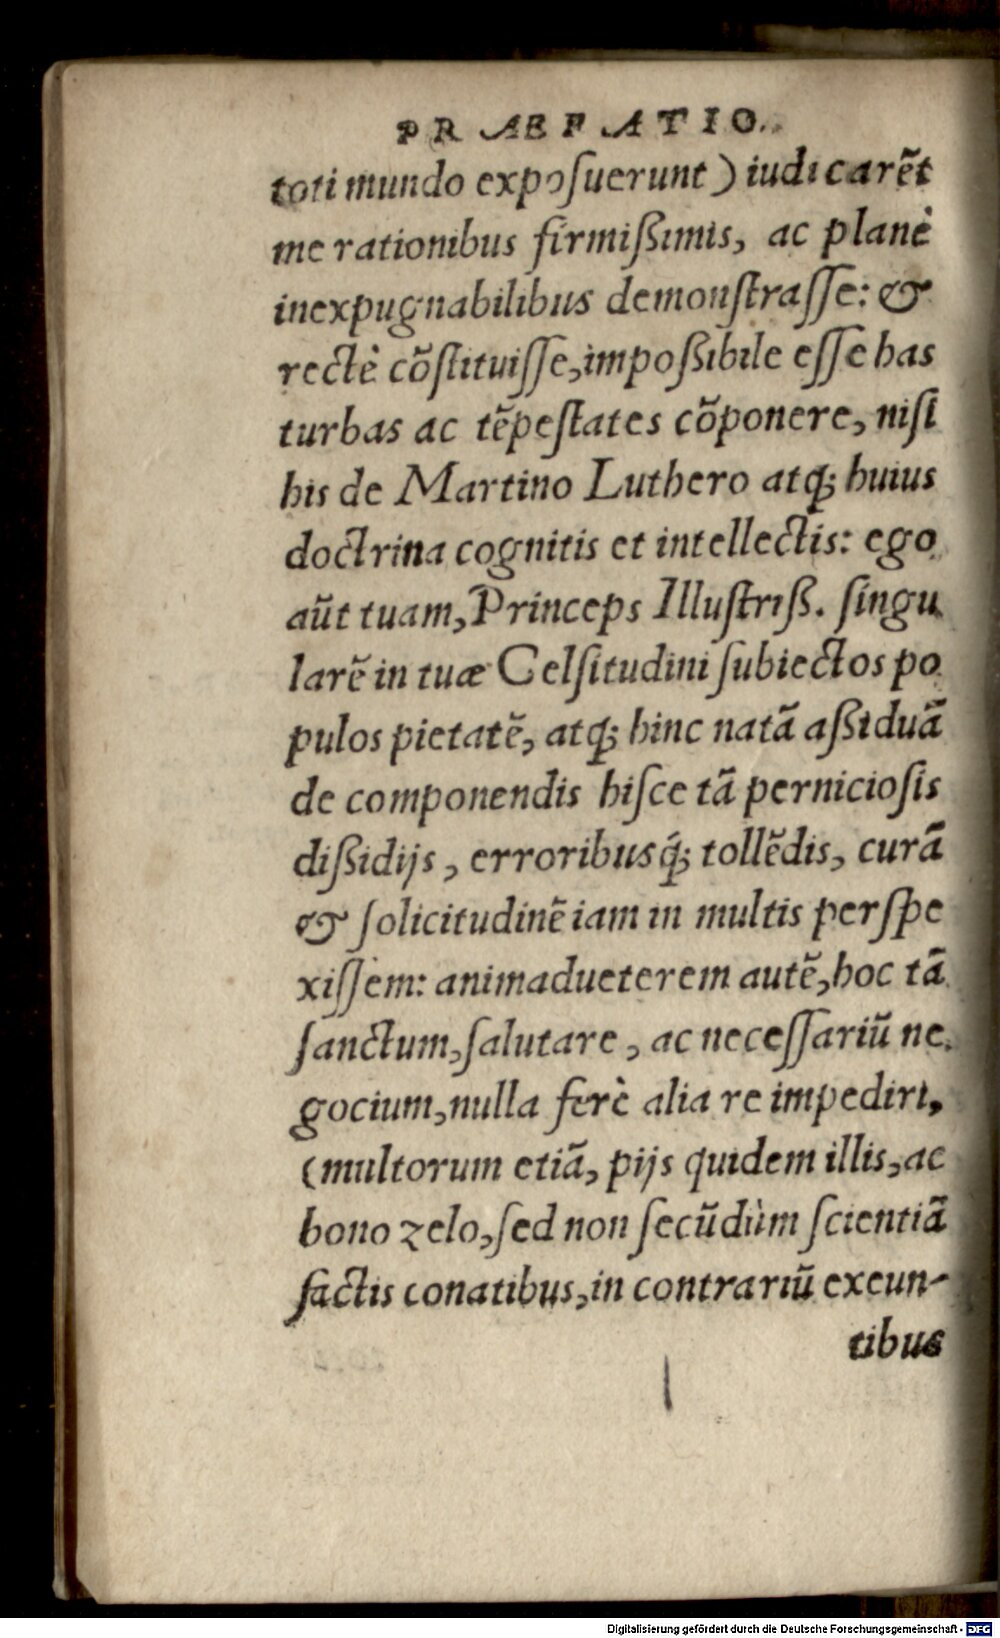 PRAEFATIO.
toti mundo exposuerunt) iudicarēt
me rationibus firmißimis, ac planè
inexpugnabilibus demonstrasse: &
rectè cōstituisse, impoßibile esse has
turbas ac tēpestates cōponere, nisi
his de Martino Luthero atq; huius
doctrina cognitis et intellectis: ego
aūt tuam, Princeps Illustriß. singu
larē in tuæ Celsitudini subiectos po
pulos pietatē, atq; hinc natā aßiduā
de componendis hisce tā perniciosis
dißidijs, erroribusq́; tollēdis, curā
& solicitudinē iam in multis perspe
xissem: animaduerterem autē, hoc tā
sanctum, salutare, ac necessariū ne
gocium, nulla ferè alia re impediri,
(multorum etiā, pijs quidem illis, ac
bono zelo, sed non secūdùm scientiā
factis conatibus, in contrariū exeun-
tibus
Digitalisierung gefördert durch die Deutsche Forschungsgemeinschaft - DFG